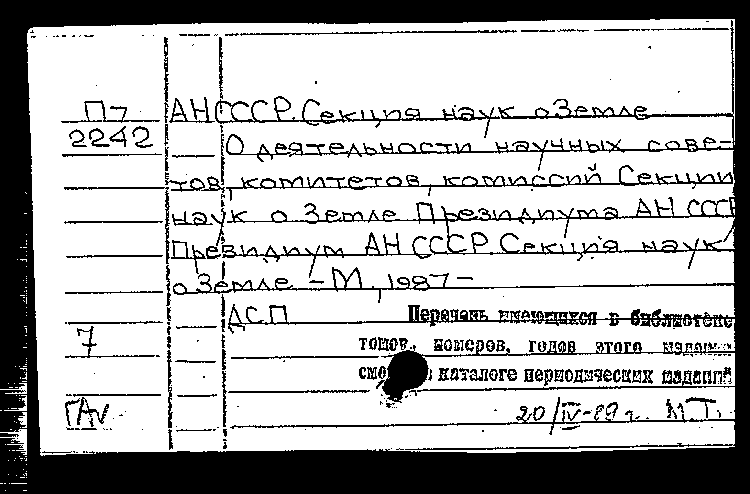 П7 АН СССР. Секция наук о Земле
2242 О деятельности научных сове-
тов, комитетов, комиссий Секции
наук о Земле Президиума АН СССР
Президиум АН СССР. Секция наук
о Земле - М, 1987 -
ДСП Перечень имеющихся в библиотеке
7 томов, номеров, годов этого издания
каталоге периодических изданий
20/IV-89 г. М.Т.